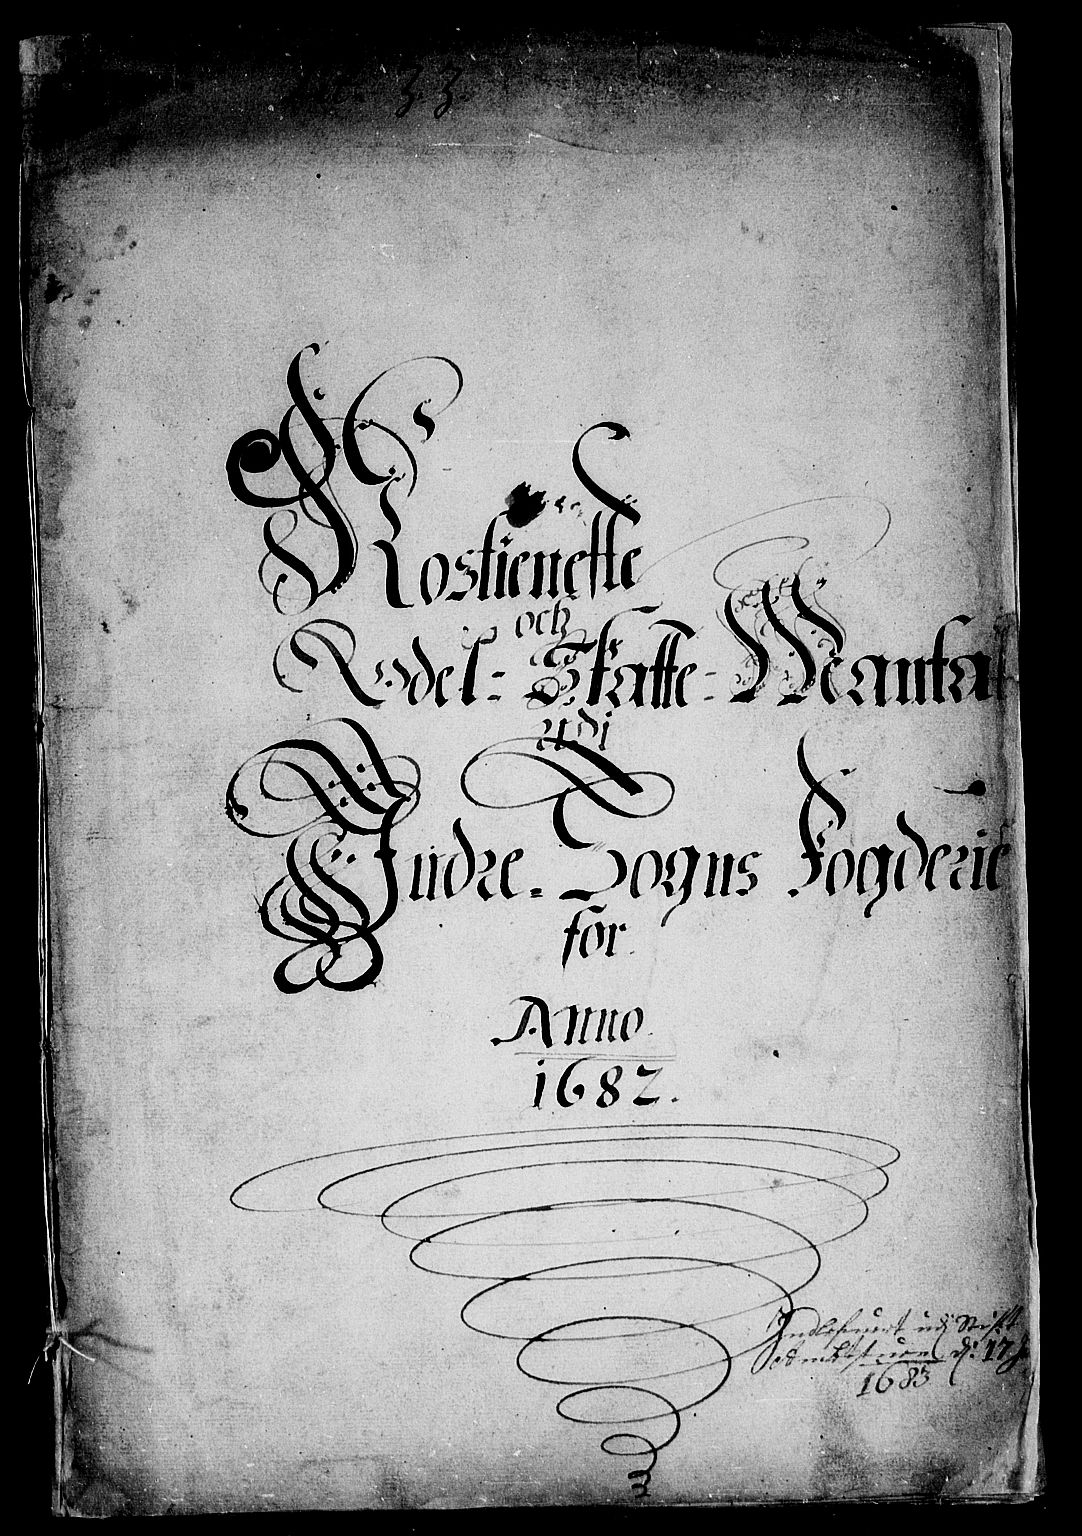 33.
Rostieneste
och
Rodel- Skatte- Mantal
udi
Indre- Sogns Fogderie
for
Anno
1682.
Indlefuert udj Stift
d: 17
1683